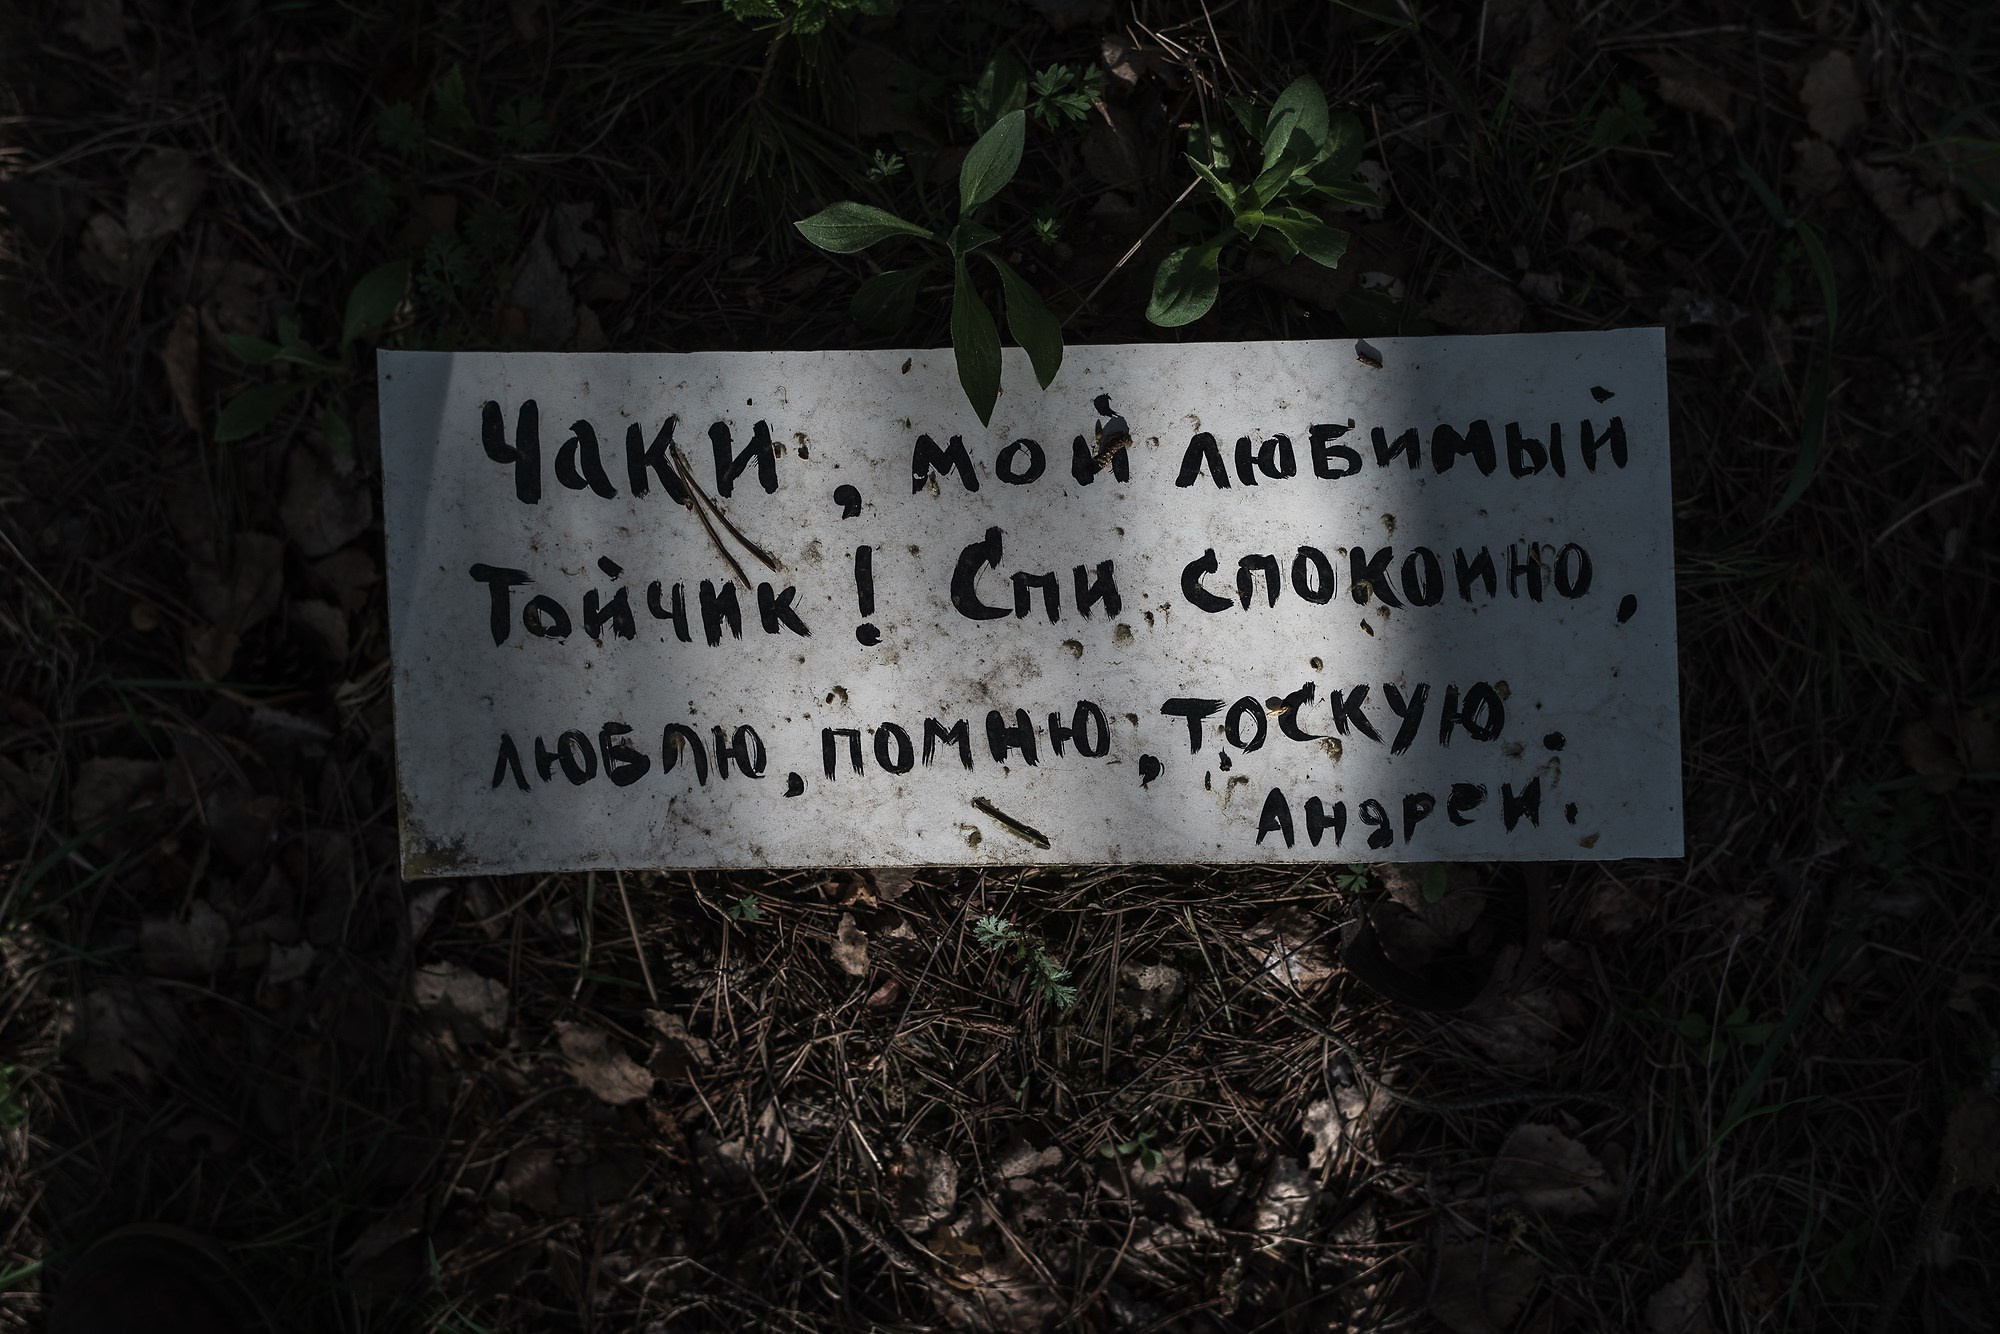 Чаки, мой любимый
Тойчик! Спи спокоино,
люблю, помню, тоскую.
Андреи.